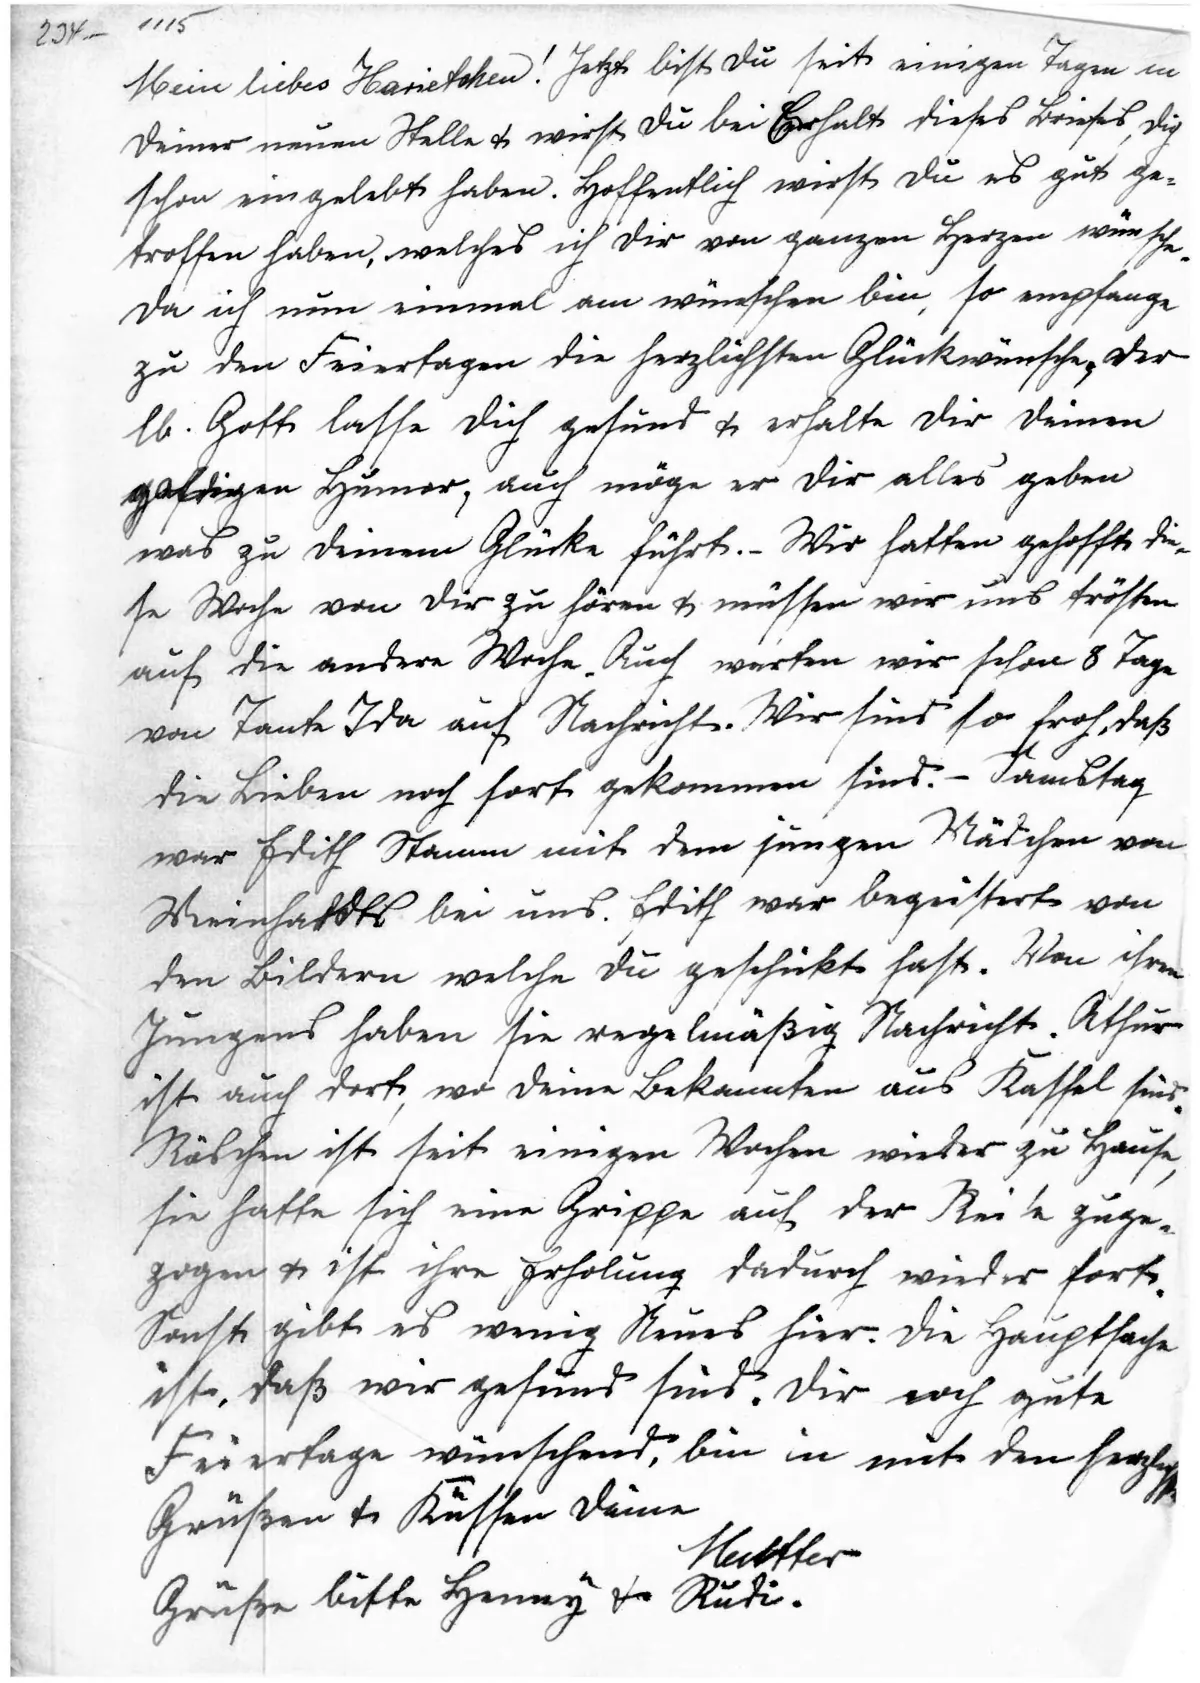 234- 1115
Mein liebes Harietchen! Jetzt bist Du seit einigen Tagen in
Deiner neuen Stelle & wirst Du bei Erhalt dieses Briefes, Dich
schon eingelebt haben. Hoffentlich wirst Du es gut ge-
troffen haben, welches ich Dir von ganzen Herzen wünsche.
Da ich nun einmal am wünschen bin, so empfange
zu den Feiertagen die herzlichsten Glückwünsche, Der
lb. Gott lasse Dich gesund & erhalte Dir Deinen
Humor, auch möge er Dir alles geben
was zu Deinem Glücke führt. - Wir hatten gehofft die-
se Woche von Dir zu hören & müssen wir uns trösten
auf die andere Woche. Auch warten wir schon 8 Tage
von Tante Ida auf Nachricht. Wir sind so froh, daß
die Lieben noch fort gekommen sind. - Samstag
war Edith Stamm mit dem jungen Mädchen von
bei uns. Edith war begeistert von
den Bildern welche Du geschickt hast. Von ihren
Jungens haben sie regelmäßig Nachricht. Athur
ist auch dort, wo Deine Bekannten aus Kassel sind.
Röschen ist seit einigen Wochen wieder zu Hause,
sie hatte sich eine Grippe auf der Reise zuge-
zogen & ist ihre Erholung dadurch wieder fort.
Sonst gibt es wenig Neues hier. Die Hauptsache
ist, daß wir gesund sind. Dir noch gute
Feiertage wünschend, bin in mit den
Grüßen & Küssen Deine
Mutter
Grüße bitte Henny & Rudi.